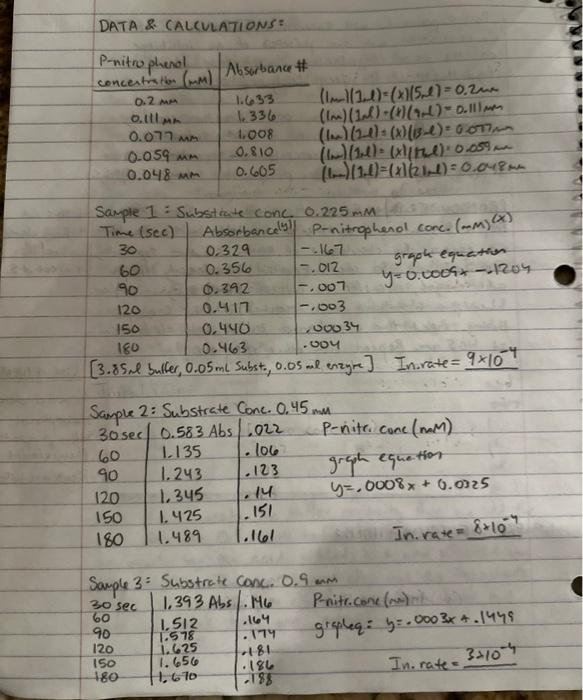 DATA & CALCULATIONS:
P-nitrophenol concentration (mM) | Absorbance #
0.2 mm 1.633 (1m)(1ml)=(x)(5ml)=0.2mm
0.111 mm 1.336 (1m)(1ml)=(x)(9ml)=0.111mm
0.077 mm 1.008 (1m)(1ml)=(x)(13ml)=0.077mm
0.059 mm 0.810 (1m)(1ml)=(x)(17ml)=0.059mm
0.048 mm 0.605 (1m)(1ml)=(x)(21ml)=0.048mm
Sample 1: Substrate conc. 0.225mM
Time (sec) | Absorbance(y) | P-nitrophenol conc. (mM)(x)
30 0.329 -.167 graph equation
60 0.356 -.012 y=0.0009x -.1204
90 0.392 -.007
120 0.417 -.003
150 0.440 .00034
180 0.463 .004
[3.85ml buffer, 0.05ml Subst., 0.05ml enzyme] In.rate= 9x10⁻⁴
Sample 2: Substrate Conc. 0.45 mm
30 sec 0.583 Abs .022 P-nitr. conc (mM)
60 1.135 .106 graph equation
90 1.243 .123 y=.0008x + 0.0325
120 1.345 .14
150 1.425 .151
180 1.489 .161 In.rate= 8x10⁻⁴
Sample 3: Substrate Conc. 0.9 mm
30 sec 1.393 Abs .146 P-nitr.conc
60 1.512 .164 graph eq: y=.0003x +.1448
90 1.578 .174
120 1.625 .181
150 1.656 .186 In.rate= 3x10⁻⁴
180 1.670 .188